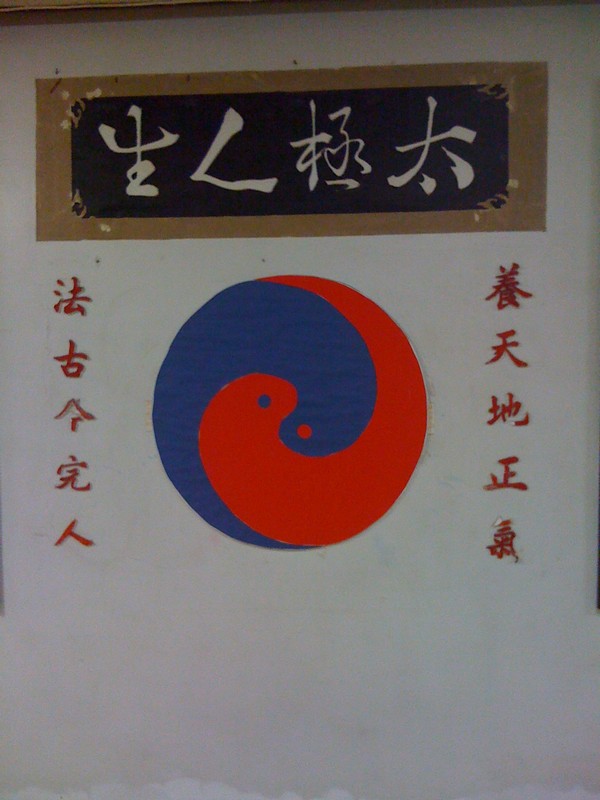 太極人生
養天地正氣
法古今完人